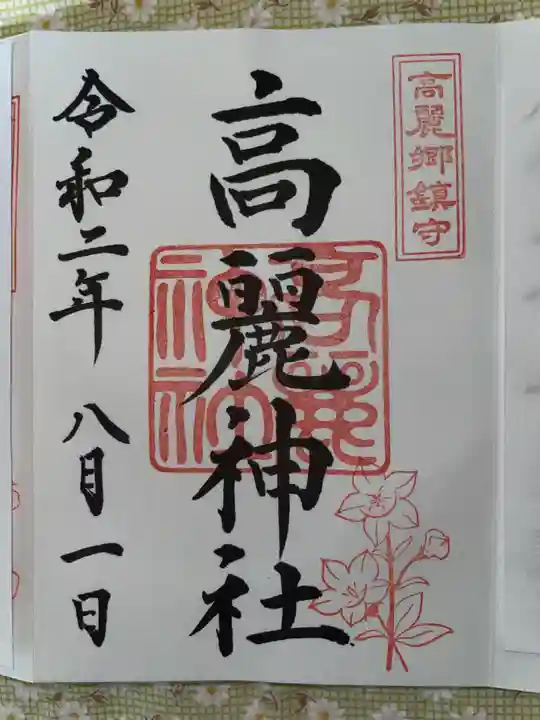 高麗郷鎮守
高麗神社
令和二年 八月一日